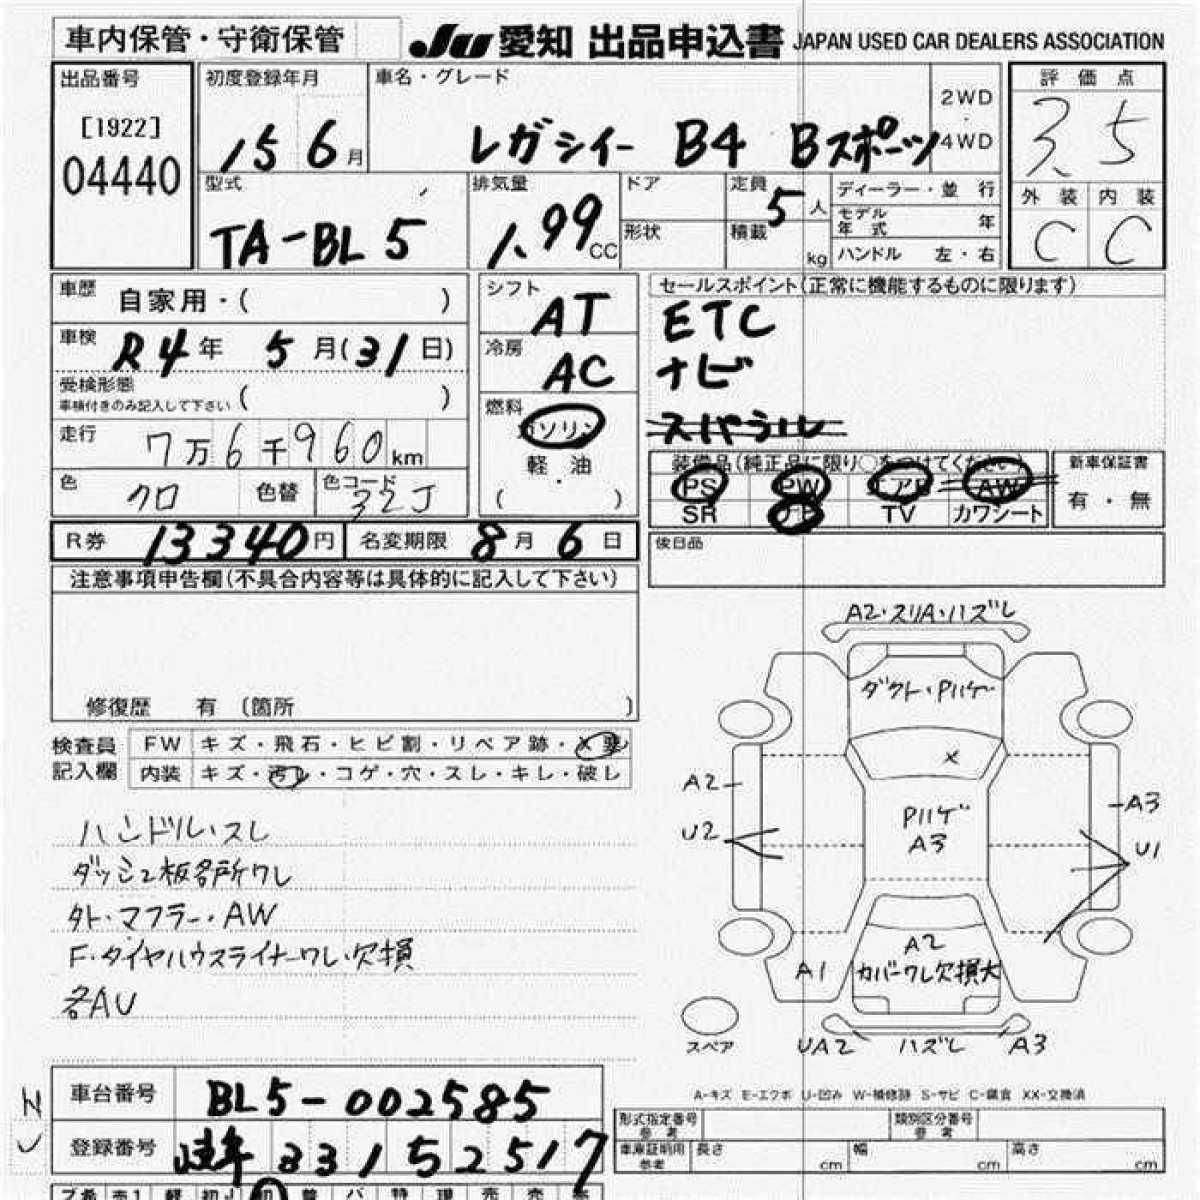 車内保管・守衛保管
JU 愛知 出品申込書 JAPAN USED CAR DEALERS ASSOCIATION
出品番号
[1922]
04440
初度登録年月
15 6月
車名・グレード
レガシィー B4 Bスポーツ
2WD
・
4WD
評価点
3.5
外装 内装
C C
型式
TA-BL5
排気量
1.99CC
ドア
形状
定員
5人
積載
kg
ディーラー・並行
モデル年式 年
ハンドル 左・右
車歴 自家用・( )
車検 R4年 5月(31日)
受検形態
車検付きのみ記入して下さい ( )
走行 7万6千960km
色 クロ 色替 色コード 32J
シフト AT
冷房 AC
燃料
ガソリン
軽・油
( )
セールスポイント(正常に機能するものに限ります)
ETC
ナビ
装備品(純正品に限り○をつけてください)
PS PW エアB AW
SR ナビ TV カワシート
新車保証書
有・無
R券 13340円 名変期限 8月6日
後日品
注意事項申告欄(不具合内容等は具体的に記入して下さい)
修復歴 有 〔箇所 〕
検査員記入欄
FW キズ・飛石・ヒビ割・リペア跡・X要
内装 キズ・汚レ・コゲ・穴・スレ・キレ・破レ
ハンドル・スレ
ダッシュ板各所ワレ
タト・マフラー・AW
F・タイヤハウスライナーワレ・欠損
各AU
A2・スリA・ハズレ
ダクト・Pハゲ
X
A2
U2
Pハゲ
A3
A3
U1
A1
A2
カバーワレ欠損大
スペア
UA2 ハズレ A3
A-キズ E-エクボ U-凹み W-補修跡 S-サビ C-腐食 XX-交換済
車台番号 BL5-002585
登録番号 岐阜 331 5 2517
形式指定番号
参考
類別区分番号
参考
車庫証明用
参考
長さ cm 幅 cm 高さ cm